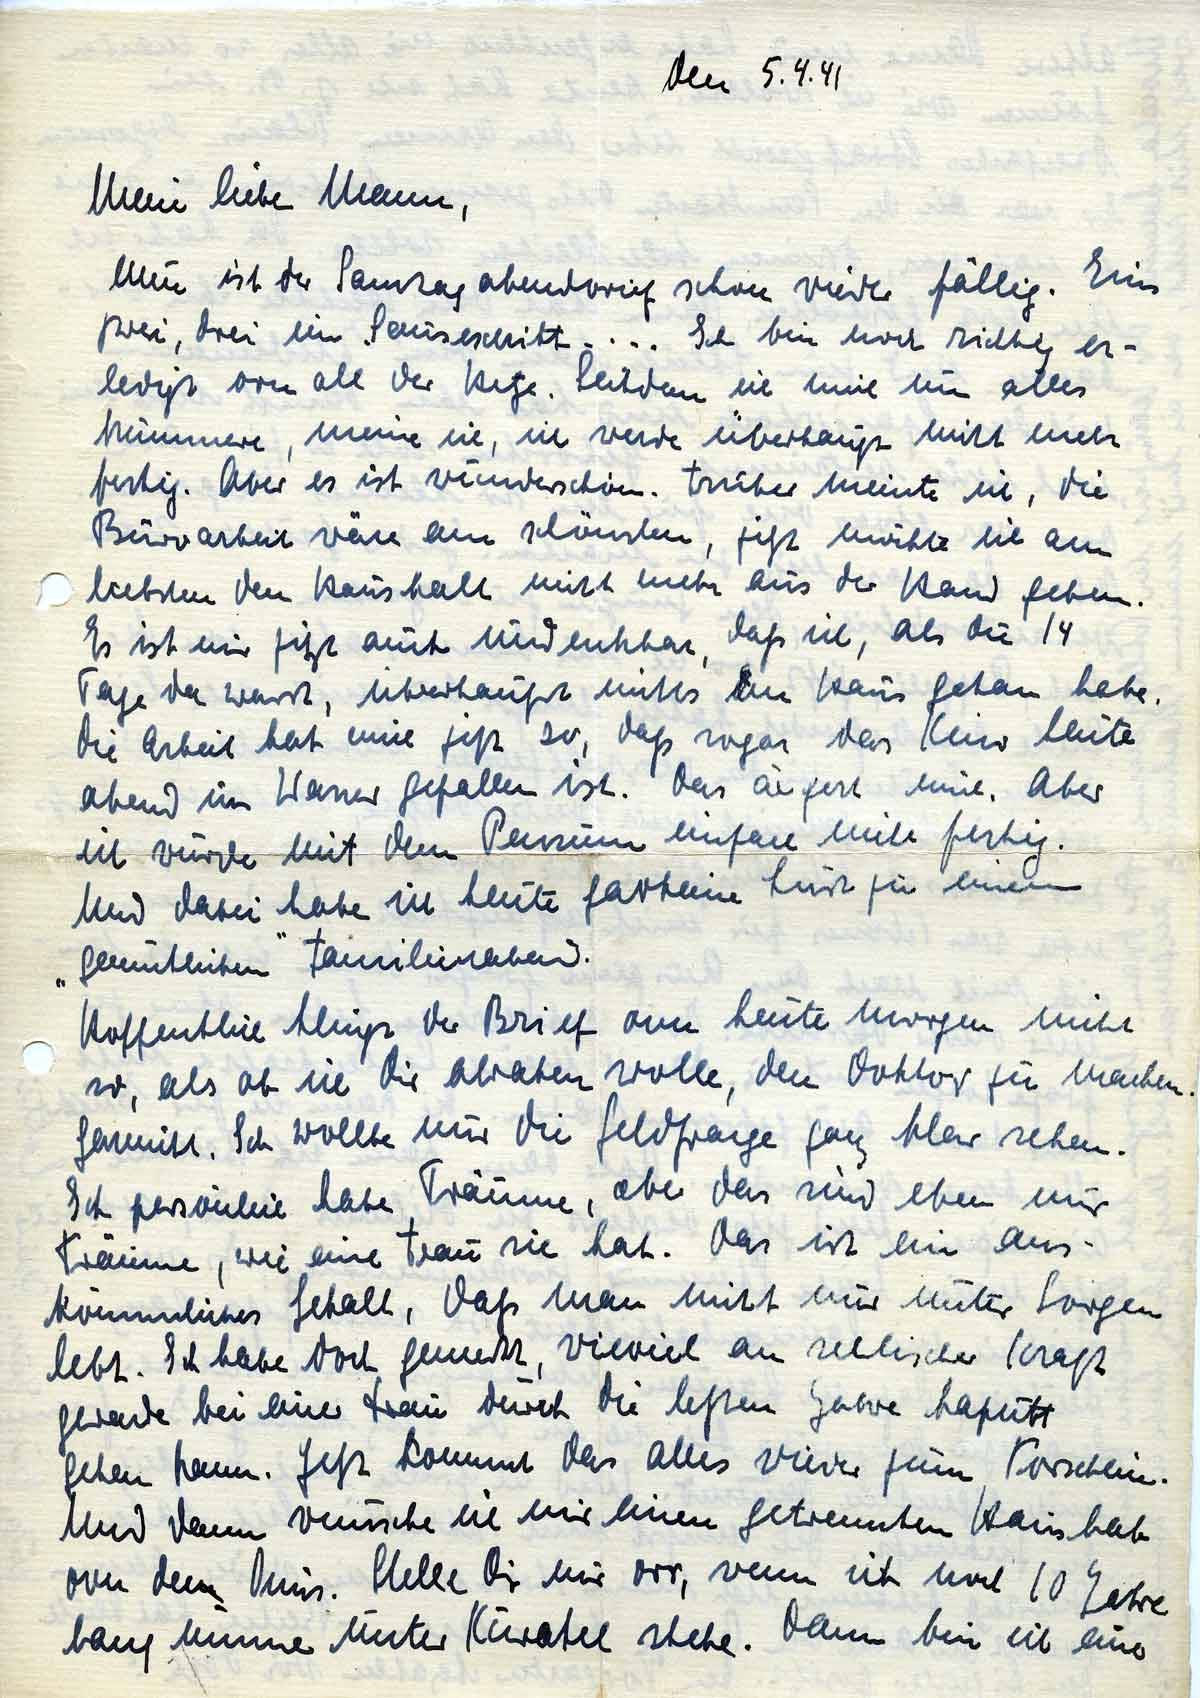 den 5.4.41
Mein lieber Mann,
Nun ist der Samstagabendbrief schon wieder fällig. Eins
zwei, drei im Sauseschritt.... Ich bin noch richtig er-
ledigt von all der Hetze. Seitdem ich mich um alles
kümmere, meine ich, ich werde überhaupt nicht mehr
fertig. Aber es ist wunderschön. Früher meinte ich, die
Büroarbeit wäre am schönsten, jetzt möchte ich am
liebsten den Haushalt nicht mehr aus der Hand geben.
Es ist mir jetzt auch undenkbar, daß ich, als du 14
Tage da warst, überhaupt nichts im Haus getan habe.
Die Arbeit hat mich jetzt so, daß sogar das Kino heute
abend ins Wasser gefallen ist. Das ärgert mich. Aber
ich würde mit dem Pensum einfach nicht fertig.
Und dabei habe ich heute garkeine Lust zu einem
„gemütlichen" Familienabend.
Hoffentlich klingt der Brief von heute morgen nicht
so, als ob ich Dir abraten wolle, den Doktor zu machen.
Garnicht. Ich wollte nur die Geldfrage ganz klar sehen.
Ich persönlich habe Träume, aber das sind eben nur
Träume, wie eine Frau sie hat. Das ist ein aus-
kömmliches Gehalt, daß man nicht nur unter Sorgen
lebt. Ich habe doch gemerkt, wieviel an seelischer Kraft
gerade bei einer Frau durch die letzten Jahre kaputt
gehen kann. Jetzt kommt das alles wieder zum Vorschein.
Und dann wünsche ich mir einen getrennten Haushalt
von dem Omis. Stelle Dir nur vor, wenn ich noch 10 Jahre
lang unter Kuratel stehe. Dann bin ich eine